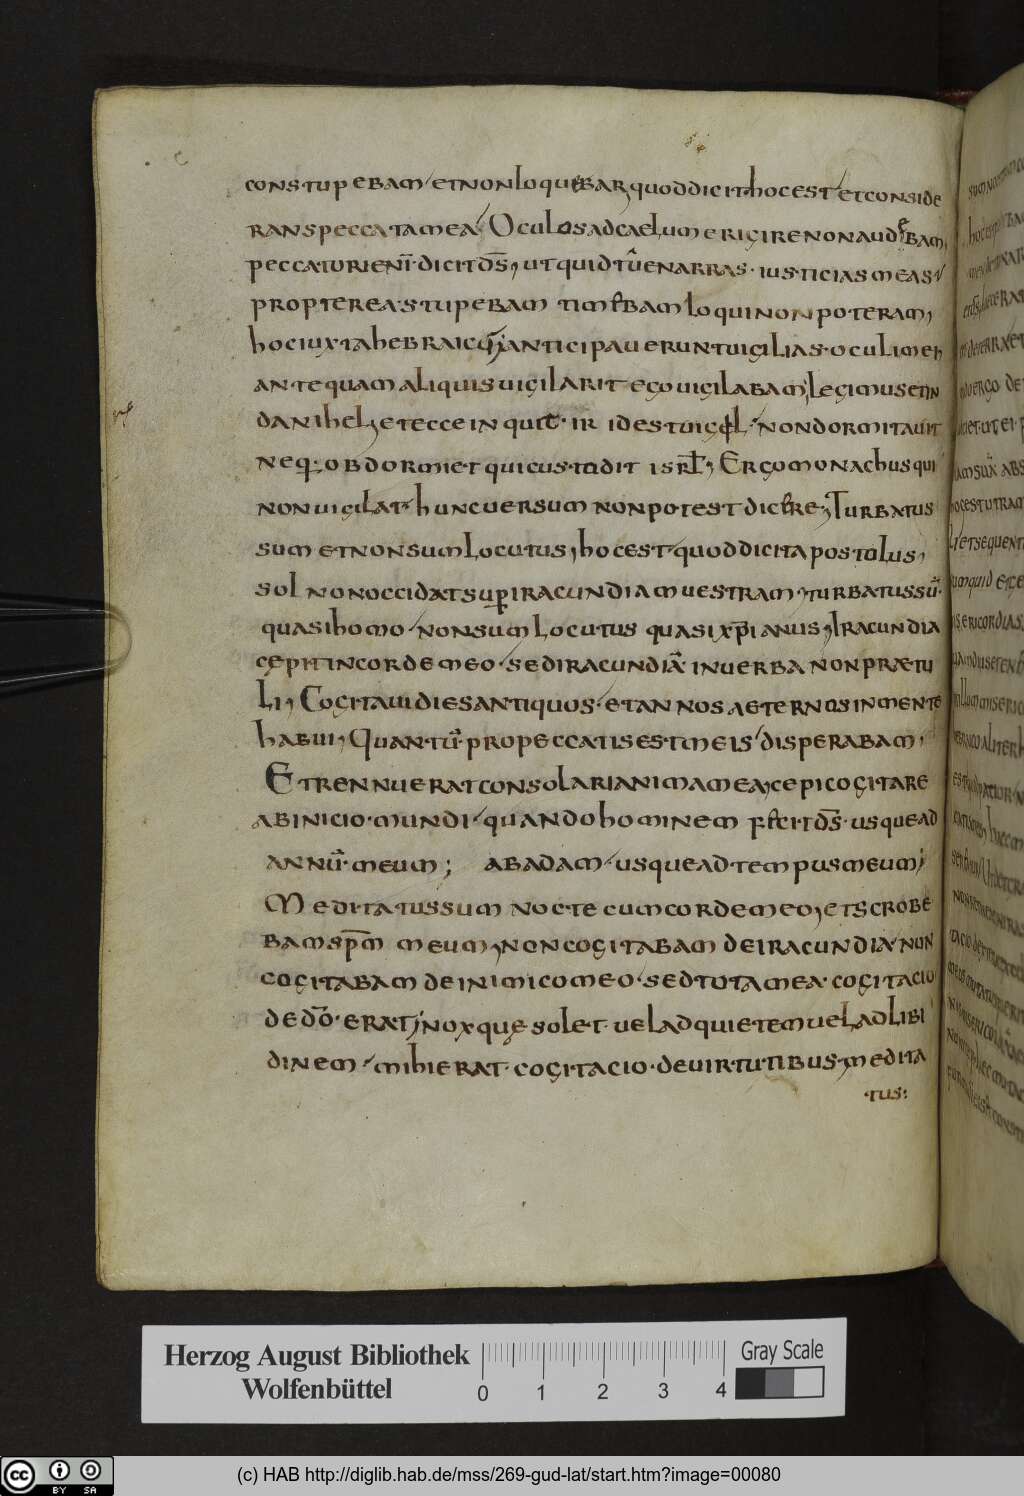 constupebam et non loquebar quod dicit hoc est et conside
rans peccata mea Oculos ad caelum erigire non audebam
peccaturi eni dicit ds, ut quid tu enarras · iusticias meas
propterea stupebam timebam loqui non poteram,
hoc iuxta hebraicu anticipauerunt uigilias oculi mei
antequam aliquis uigilarit ego uigilabam, legimus et in
danihel, et ecce inquit · ir id est uigil non dormitauit
neq; obdormiet qui custodit isrl, Ergo monachus qui
non uigilat hunc uersum non potest dicere, Turbatus
sum et non sum locutus, hoc est quod dicit apostolus,
sol non occidat sup iracundiam uestram, turbatus su
quasi homo non sum locutus quasi xpianus, Iracundia
cepit in corde meo sed iracundia in uerba non prætu
li, Cogitaui dies antiquos et annos aeternos in mente
habui, Quantu propeccatis est meis disperabam,
Et rennuerat consolari anima mea, cepi cogitare
ab inicio mundi quando hominem fecit ds usque ad
annu meum; ab adam usque ad tempus meum;
Meditatus sum nocte cum corde meo, et scrobe
bam spm meum, non cogitabam de iracundia non
cogitabam de inimico meo sed tota mea cogitacio
de do erat, nox que solet uel ad quietem uel ad libi
dinem mihi erat cogitacio de uirtutibus medita
tus:
Herzog August Bibliothek
Wolfenbüttel
0 1 2 3 4
Gray Scale
cc BY SA
(c) HAB http://diglib.hab.de/mss/269-gud-lat/start.htm?image=00080